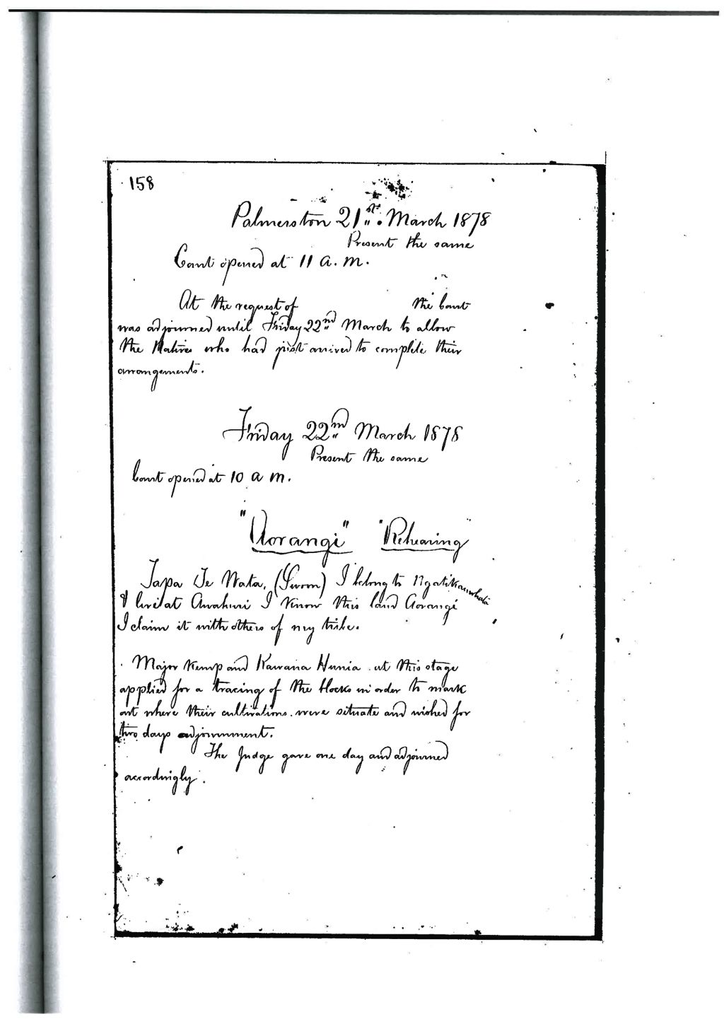 158
Palmerston 21st. March 1878
Present the same
Court opened at 11 a.m.
At the request of the Court
was adjourned until Friday 22nd March to allow
the Natives who had just arrived to complete their
arrangements.
Friday 22nd March 1878
Present the same
Court opened at 10 a m.
"Aorangi" "Rehearing"
Tapa Te Wata, (Sworn) I belong to Ngatikauwhata
& live at Awahuri I know this land Aorangi
I claim it with others of my tribe.
Major Kemp and Kawana Hunia at this stage
applied for a tracing of the blocks in order to mark
out where their cultivations were situate and wished for
two days adjournment.
The Judge gave one day and adjourned
accordingly.